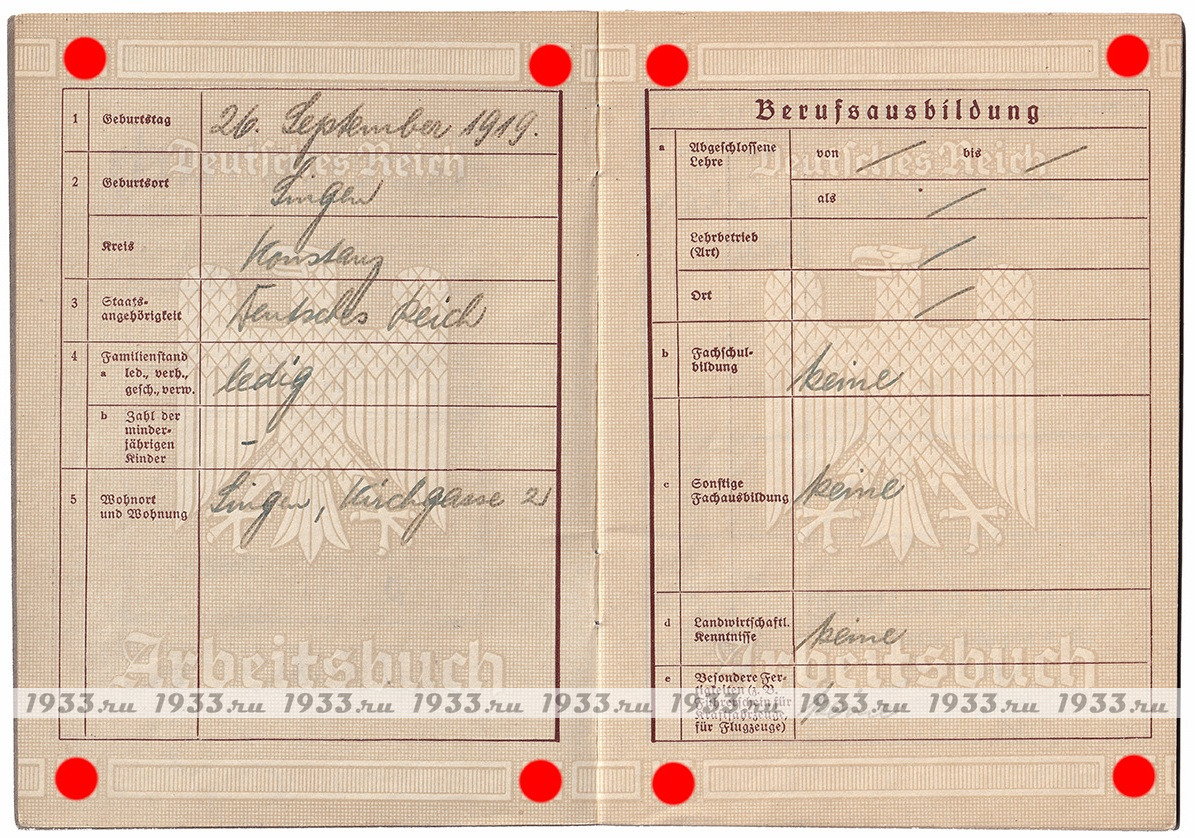 1 Geburtstag 26. September 1919.
Deutsches Reich
2 Geburtsort Singen
Kreis Konstanz
3 Staats-
angehörigkeit Deutsches Reich
4 Familienstand
a led., verh.,
gesch., verw. ledig
b Zahl der
minder-
jährigen
Kinder –
5 Wohnort
und Wohnung Singen, Kirchgasse 21
Arbeitsbuch
Berufsausbildung
a Abgeschlossene
Lehre von / bis /
Deutsches Reich
als /
Lehrbetrieb
(Art) /
Ort /
b Fachschul-
bildung keine
c Sonstige
Fachausbildung keine
d Landwirtschaftl.
Kenntnisse keine
Arbeitsbuch
e Besondere Fer-
tigkeiten (z. B.
Führerschein für
Kraftfahrzeuge,
für Flugzeuge) keine
1933.ru 1933.ru 1933.ru 1933.ru 1933.ru 1933.ru 1933.ru 1933.ru 1933.ru